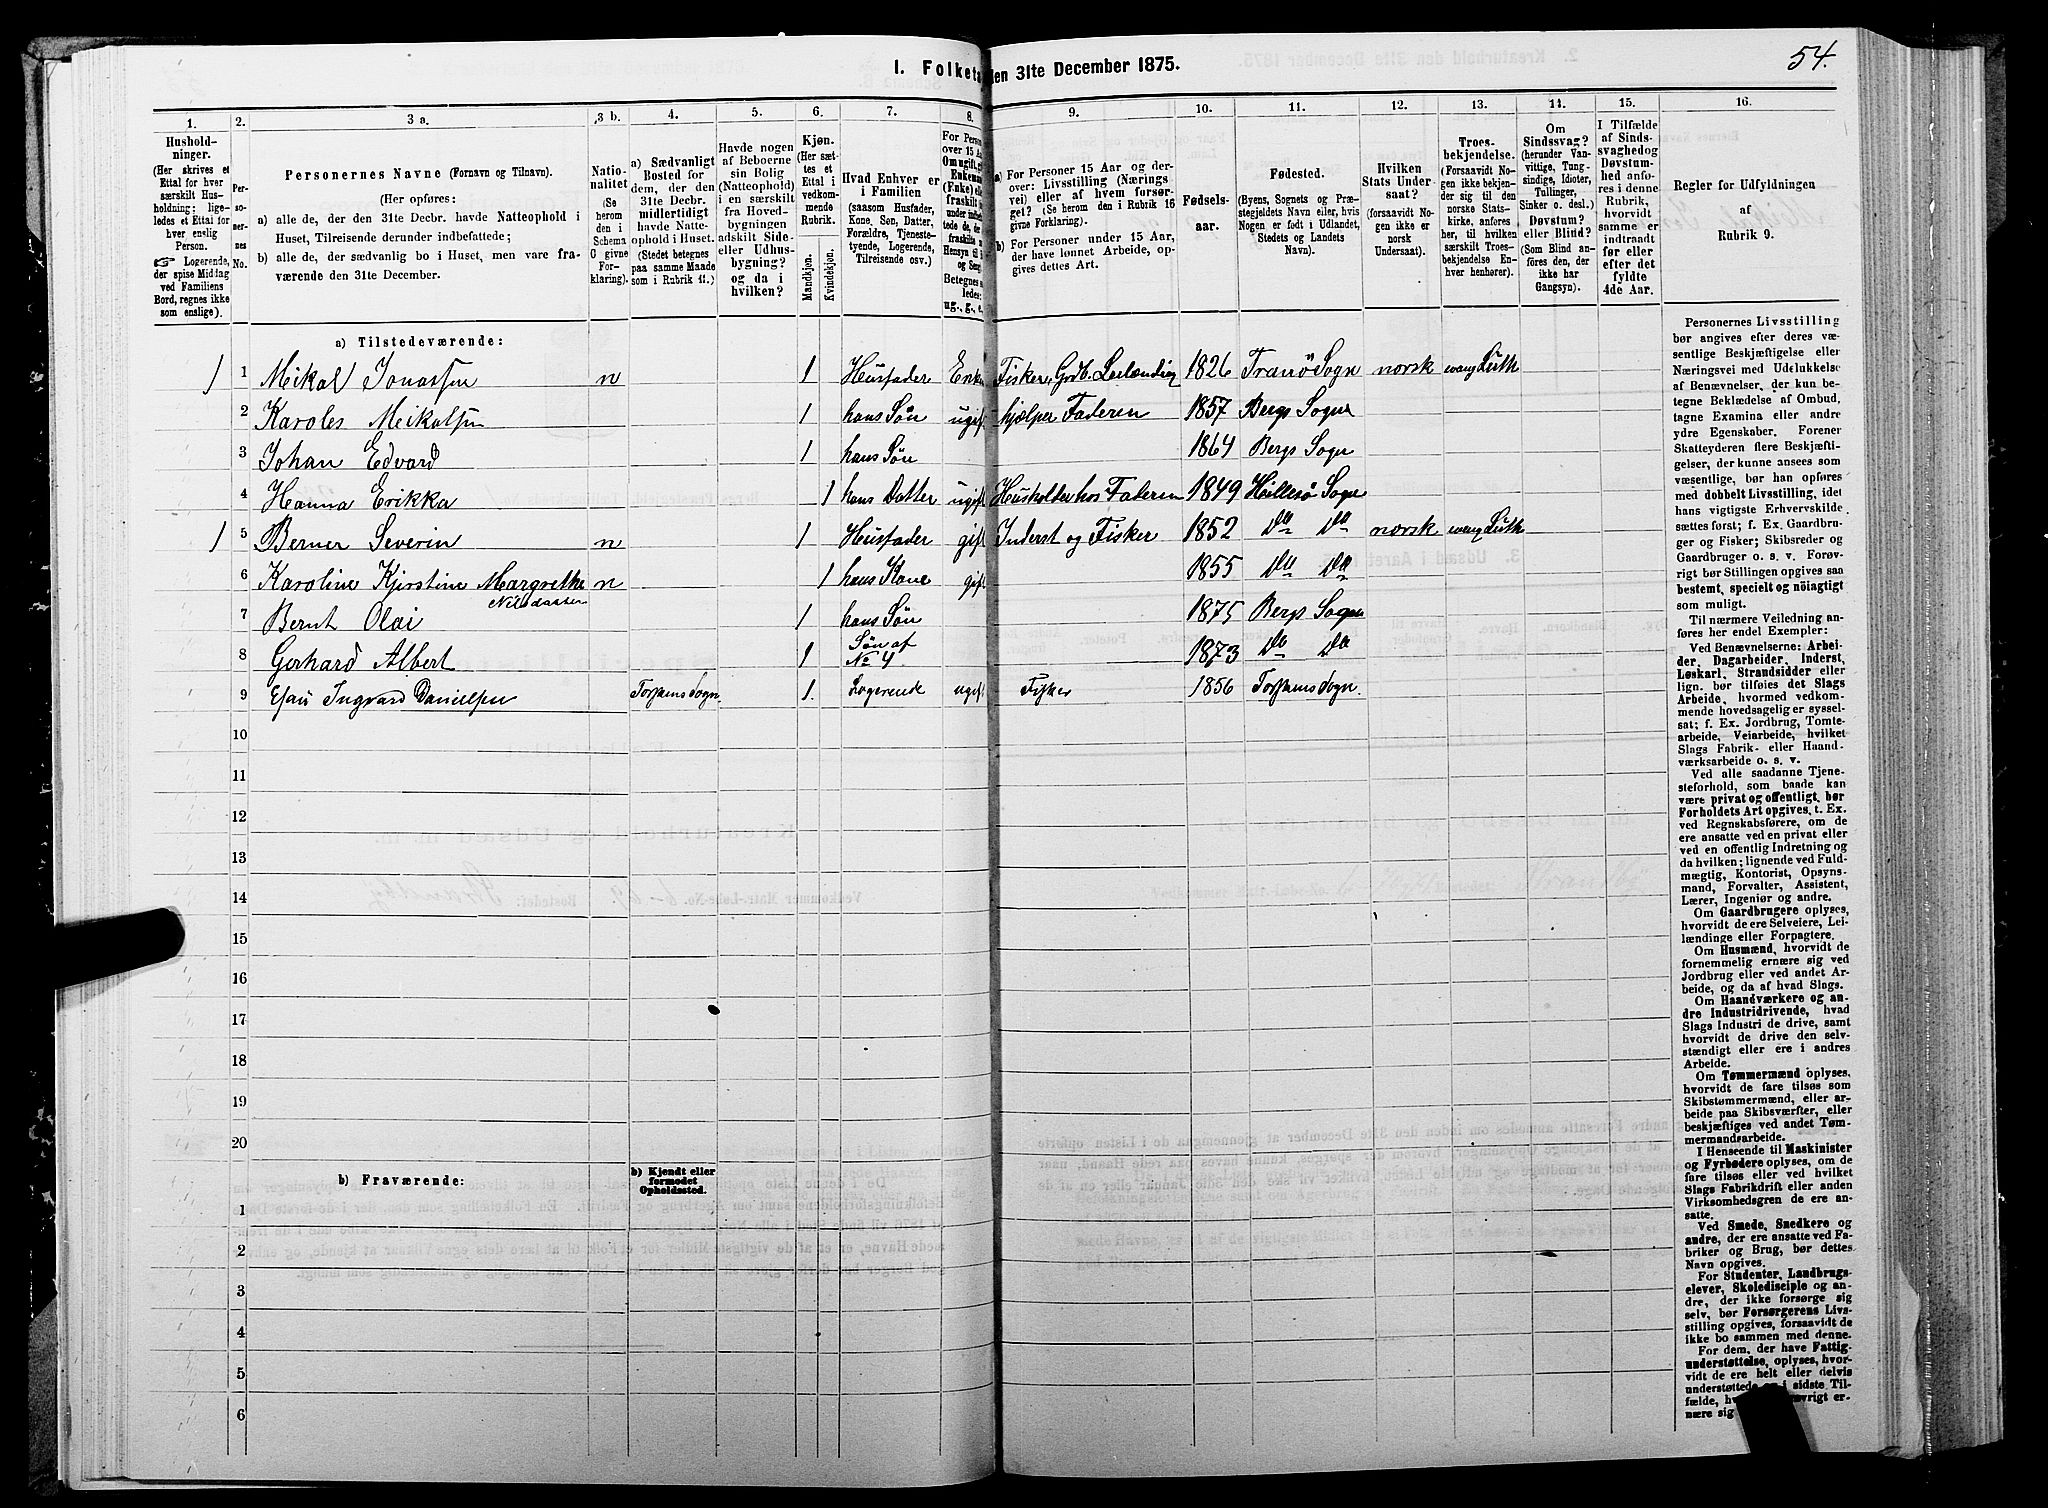 54.
1. Folketæ
den 31te December 1875.
1.
2.
3 a.
3 b.
4.
5.
6.
7.
8.
9.
10.
11.
12.
13.
14.
15.
16.
Hushold-
ninger.
(Her skrives et
Ettal for hver
særskilt Hus-
holdning; lige-
ledes et Ettal for
hver enslig
Person.
☞ Logerende,
der spise Middag
ved Familiens
Bord, regnes ikke
som enslige).
Per-
so-
ner-
nes
No.
Personernes Navne (Fornavn og Tilnavn).
(Her opføres:
a) alle de, der den 31te Decbr. havde Natteophold i
Huset, Tilreisende derunder indbefattede;
b) alle de, der sædvanlig bo i Huset, men vare fra-
værende den 31te December.
Natio-
nalitet
(Se
herom
den i
Schema
G givne
For-
klaring).
a) Sædvanligt
Bosted for
dem, der den
31te Decbr.
midlertidigt
havde Natte-
ophold i Huset.
(Stedet betegnes
paa samme Maade
som i Rubrik 11.)
Havde nogen
af Beboerne
sin Bolig
(Natteophold)
i en særskilt
fra Hoved-
bygningen
adskilt Side-
eller Udhus-
bygning?
og da i
hvilken?
Kjøn.
(Her sæt-
tes et
Ettal i
vedkom-
mende
Rubrik.
Mandkjøn.
Kvindekjøn.
Hvad Enhver er
i Familien
(saasom Husfader,
Kone, Søn, Datter,
Forældre, Tjeneste-
tyende, Logerende,
Tilreisende osv.)
For Person
over 15 Aa
Om ugift, gi
Enkem
(Enke) el
fraskilt
a) For Personer 15 Aar og der-
over: Livsstilling (Nærings-
vei) eller af hvem forsør-
get? (Se herom den i Rubrik 16
givne Forklaring).
b) For Personer under 15 Aar,
der have lønnet Arbeide, op-
gives dettes Art.
Fødsels-
aar.
Fødested.
(Byens, Sognets og Præ-
stegjeldets Navn eller, hvis
Nogen er født i Udlandet,
Stedets og Landets
Navn).
Hvilken
Stats Under
saat?
(forsaavidt No-
gen ikke er
norsk
Undersaat).
Troes-
bekjendelse.
(Forsaavidt No-
gen ikke bekjen-
der sig til den
norske Stats-
kirke, anføres
her, til hvilken
særskilt Troes-
bekjendelse En-
hver henhører).
Om
Sindssvag?
(herunder Van-
vittige, Tung-
sindige, Idioter,
Tullinger,
Sinker o. desl.)
Døvstum?
eller Blind?
(Som Blind an-
føres den, der
ikke har
Gangsyn).
I Tilfælde
af Sinds-
svaghed og
Døvstum-
hed anfø-
res i denne
Rubrik,
hvorvidt
samme er
indtraadt
før eller
efter det
fyldte
4de Aar.
Regler for Udfyldningen
af
Rubrik 9.
a) Tilstedeværende:
1 1 Mikal Jonassen n 1 Husfader Enk Fisker, Grdb. Leilænding 1826 Tranö Sogn norsk evang Luth
2 Karoles Meikalsen 1 hans Søn ugift hjælper Faderen 1857 Bergs Sogn
3 Johan Edvard 1 hans Søn 1864 Bergs Sogn
4 Hanna Erikka 1 hans Datter ugift Husholder hos Faderen 1849 Hillesö Sogn
1 5 Berner Severin n 1 Husfader gift Inderst og Fisker 1852 Do Do norsk evang Luth
6 Karoline Kjerstine Margrethe n 1 hans Kone gift 1855 Do Do
Nilsdaatter
7 Bernt Olai 1 hans Søn 1875 Bergs Sogn
8 Gerhard Albert 1 Søn af No 4 1873 Do Do
9 Esau Ingvard Danielsen Torskens Sogn. 1. Logerende ugift Fisker 1856 Torskens Sogn.
10
11
12
13
14
15
16
17
18
19
20
b) Fraværende:
b) Kjendt eller
formodet
Opholdssted.
1
2
3
4
5
6
Personernes Livsstilling
bør angives efter deres væ-
sentlige Beskjæftigelse eller
Næringsvei med Udelukkelse
af Benævnelser, der kun be-
tegne Beklædelse af Ombud,
tagne Examina eller andre
ydre Egenskaber. Forener
Skatteyderen flere Beskjæfti-
gelser, der kunne ansees som
væsentlige, bør han opgives
med dobbelt Livsstilling, idet
hans vigtigste Erhvervskilde
sættes først; f. Ex. Gaardbru-
ger og Fisker; Skibsreder og
Gaardbruger o. s. v. Forøv-
rigt bør Stillingen opgives saa
bestemt, specielt og nöiagtigt
som muligt.
Til nærmere Veiledning an-
føres her endel Exempler:
Ved Benævnelserne: Arbei-
der, Dagarbeider, Inderst,
Løskarl, Strandsidder eller
lign. bør tilføies det Slags
Arbeide, hvormed vedkom-
mende hovedsagelig er syssel-
sat; f. Ex. Jordbrug, Tomte-
arbeide, Veiarbeide, hvilket
Slags Fabrik- eller Haand-
værksarbeide o. s. v.
Ved alle saadanne Tjene-
steforhold, som baade kan
være privat og offentligt, bør
Forholdets Art opgives, t. Ex.
ved Regnskabsførere, om de
ere ansatte ved en privat eller
ved en offentlig Indretning og
da hvilken; lignende ved Fuld-
mægtig, Kontorist, Opsyns-
mand, Forvalter, Assistent,
Lærer, Ingeniør og andre.
Om Gaardbrugere oplyses,
hvorvidt de ere Selveiere, Lei-
lændinge eller Forpagtere.
Om Husmænd, hvorvidt de
fornemmelig ernære sig ved
Jordbrug eller ved andet Ar-
beide, og da af hvad Slags.
Om Haandværkere og an-
dre Industridrivende, hvad
Slags Industri de drive, samt
hvorvidt de drive den selv-
stændigt eller ere i andres
Arbeide.
Om Tømmermænd oplyses,
hvorvidt de fare tilsøs som
Skibstømmermænd, eller ar-
beide paa Skibsværfter, eller
beskjæftiges ved andet Tøm-
mermandsarbeide.
I Henseende til Maskinister
og Fyrbødere oplyses, om de
fare tilsøs eller ved hvilket
Slags Fabrikdrift eller anden
Virksomhedsgren de ere an-
satte.
Ved Smede, Snedkere og
andre, der ere ansatte ved Fa-
briker og Brug, bør dettes
Navn opgives.
For Studenter, Landbrugs-
elever, Skoledisciple og an-
dre, der ikke forsørge sig
selv, bør Forsørgerens Livs-
stilling opgives, forsaavidt de
ikke bo sammen med denne.
For dem, der have Fattig-
understøttelse, oplyses, hvor-
vidt de ere helt eller delvis
understøttede og i sidste Til-
fælde, øvrigt er-
nære sig